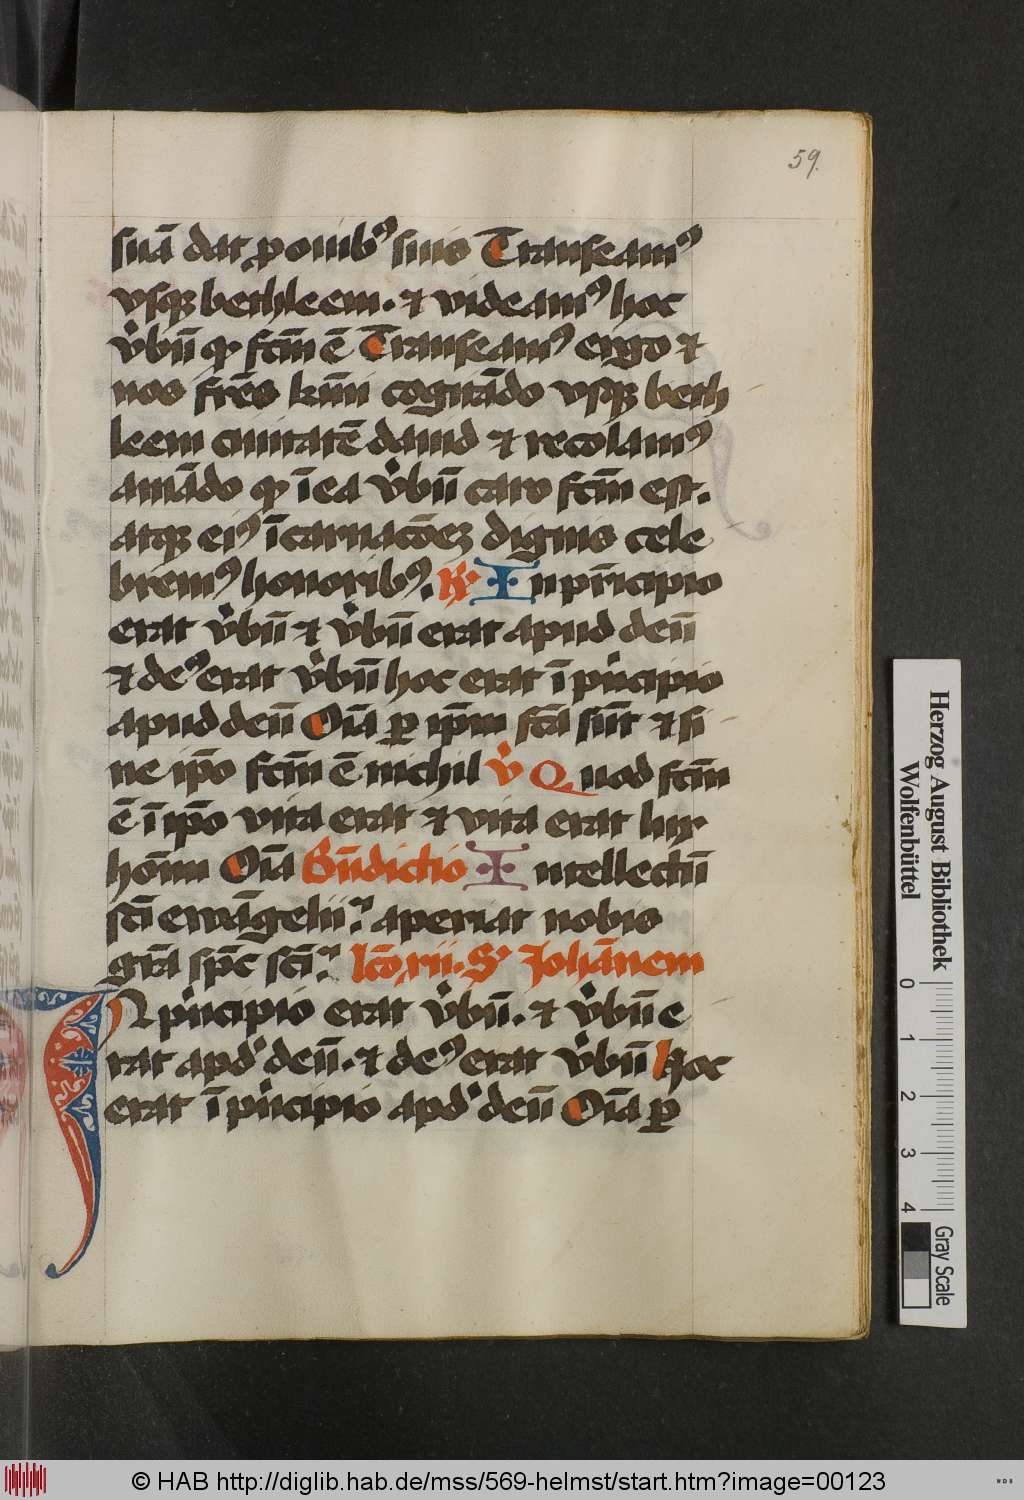 59.
suā dat p̱ ouibꝰ suis Transeamꝰ
vsqꝫ bethleem. ⁊ videamꝰ hoc
v̾bū ꝙ fc̄m ē Transeamꝰ ergo ⁊
nos fr̄es kīmi cogitādo vsqꝫ beth
leem ciuitatē dauid ⁊ recolamꝰ
amādo ꝙ ī ea v̾bū caro fc̄m est.
atqꝫ eiꝰ īcarnacōeꝫ dignis cele
bremꝰ honoribꝰ. ℟ In pr̄icipio
erat v̾bū ⁊ v̾bū erat apud deū
⁊ deꝰ erat v̾bū hoc erat ī pͥncipio
apud deū Oīa ꝑ ip̄m fc̄a sūt ⁊ si
ne ip̄o fc̄m ē nichil v̾ Quod fc̄m
ē ī ip̄o vita erat ⁊ vita erat lux
hoīm Oīa Bn̄dictio Intellectū
sc̄i ewāgelii. aperiat nobis
gr̄a sp̄c sc̄i. lc̄o xii. S. Johānem
IN pͥncipio erat v̾bū. ⁊ v̾bū e
rat apd̾ deū. ⁊ deꝰ erat v̾bū hoc
erat ī pͥncipio apd̾ deū Oīa ꝑ
Herzog August Bibliothek
Wolfenbüttel
0 1 2 3 4
Gray Scale
© HAB http://diglib.hab.de/mss/569-helmst/start.htm?image=00123